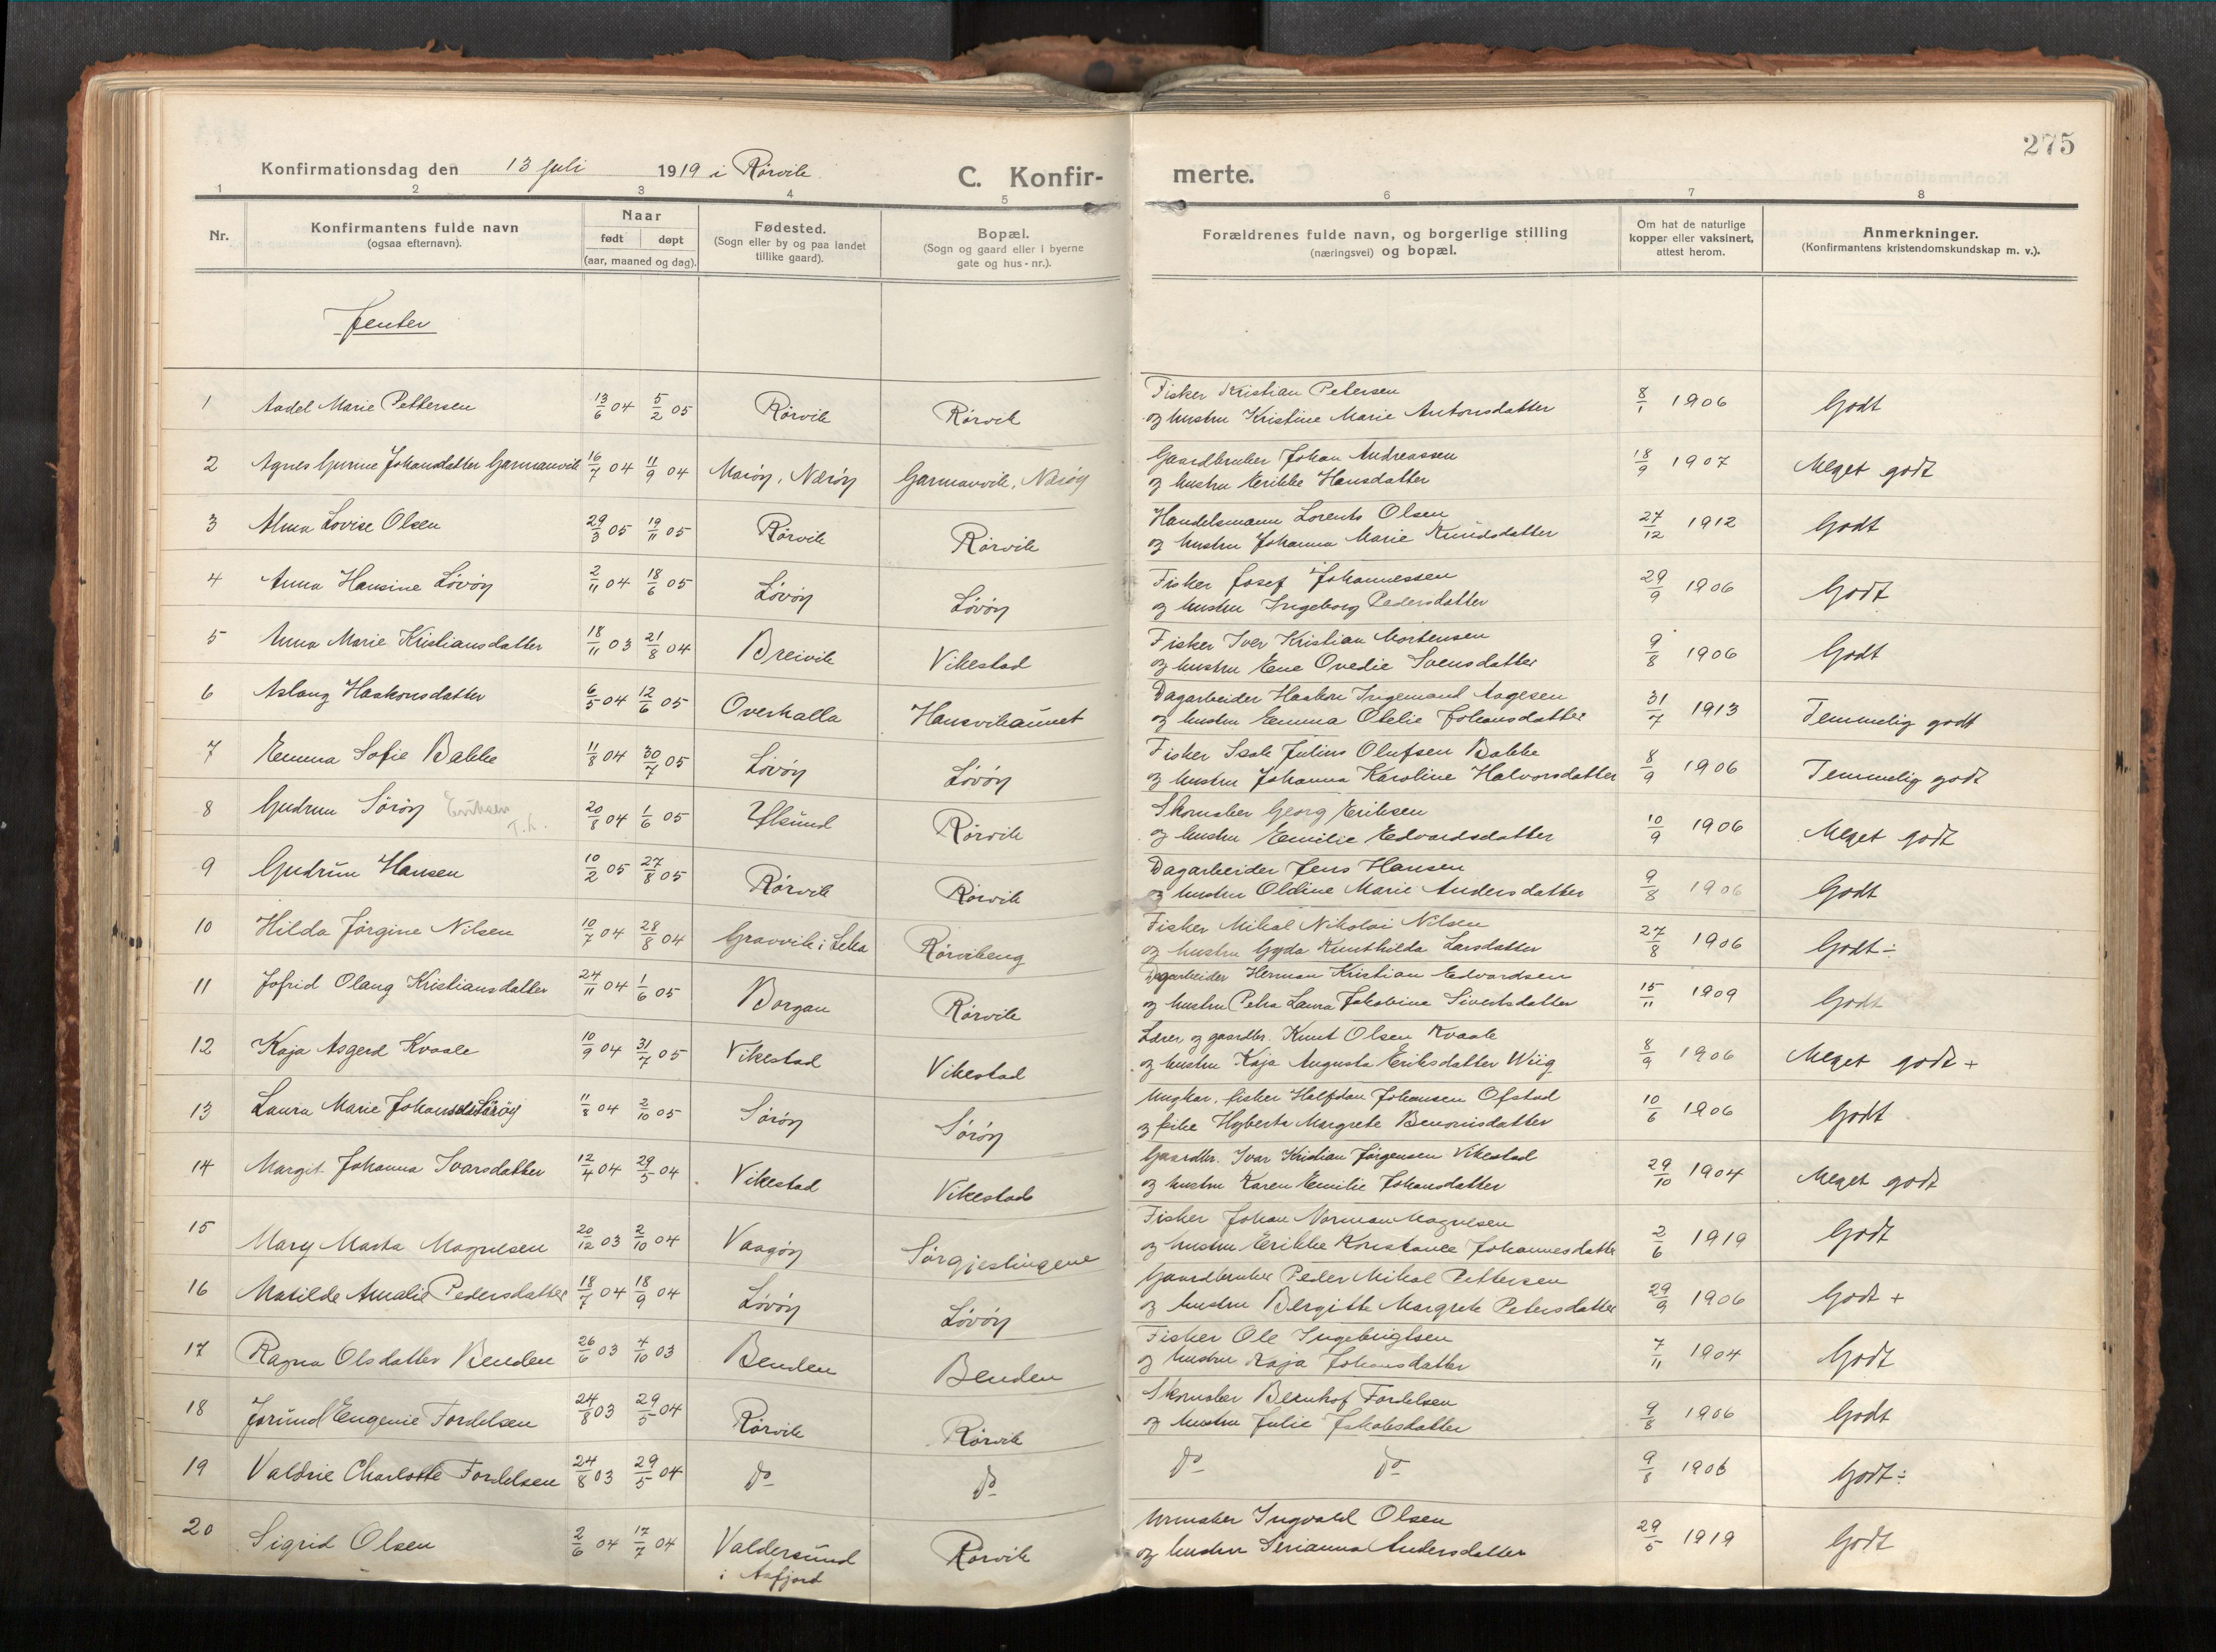 275
Konfirmationsdag den 13 juli 1919 i Rørvik
C. Konfir- merte.
1 2 3 4 5 6 7 8
Nr.
Konfirmantens fulde navn
(ogsaa efternavn).
Naar
født døpt
(aar, maaned og dag).
Fødested.
(Sogn eller by og paa landet
tillike gaard).
Bopæl.
(Sogn og gaard eller i byerne
gate og hus - nr.).
Forældrenes fulde navn, og borgerlige stilling
(næringsvei) og bopæl.
Om hat de naturlige
kopper eller vaksinert,
attest herom.
Anmerkninger.
(Konfirmantens kristendomskundskap m. v.).
Jenter
1 Aadel Marie Pettersen 13/6 04 5/2 05 Rørvik Rørvik Fisker Kristian Petersen 8/1 1906 Godt
og hustru Kristine Marie Antonsdatter
2 Agnes Gurine Johansdatter Garmanvik 16/7 04 11/9 04 Marøy, Nærøy Garmanvik, Nærøy Gaardbruker Johan Andreassen 18/9 1907 Meget godt
og hustru Erikke Hansdatter
3 Alma Lovise Olsen 29/3 05 19/11 05 Rørvik Rørvik Handelsmann Lorents Olsen 27/12 1912 Godt
og hustru Johanna Marie Knudsdatter
4 Anna Hansine Løvøy 2/11 04 18/6 05 Løvøy Løvøy Fisker Josef Johannessen 29/9 1906 Godt
og hustru Ingeborg Pedersdatter
5 Anna Marie Kristiansdatter 18/11 03 21/8 04 Breivik Vikestad Fisker Iver Kristian Mortensen 9/8 1906 Godt
og hustru Ene Ovedie Svensdatter
6 Aslaug Haakonsdatter 6/5 04 12/6 05 Overhalla Hansvikaunet Dagarbeider Haakon Ingemand Aagesen 31/7 1913 Temmelig godt
og hustru Emma Otelie Johansdatter
7 Emma Sofie Bakke 11/8 04 30/7 05 Løvøy Løvøy Fisker Isak Julius Olufsen Bakke 8/9 1906 Temmelig godt
og hustru Johanna Karoline Halvorsdatter
8 Gudrun Sørøy Eriksen 20/8 04 1/6 05 Ulsund Rørvik Skomaker Georg Eriksen 10/9 1906 Meget godt
og hustru Emilie Edvardsdatter
9 Gudrun Hansen 10/2 05 27/8 05 Rørvik Rørvik Dagarbeider Jens Hansen 9/8 1906 Godt
og hustru Oldine Marie Andersdatter
10 Hilda Jørgine Nilsen 10/7 04 28/8 04 Gravvik i Leka Rørvikeng Fisker Mikal Nikolai Nilsen 27/8 1906 Godt ÷
og hustru Gyda Kunthilda Larsdatter
11 Jofrid Olaug Kristiansdatter 24/11 04 1/6 05 Borgan Rørvik Dagarbeider Herman Kristian Edvardsen 15/11 1909 Godt
og hustru Petra Laura Jakobine Sivertsdatter
12 Kaja Asgerd Kvaale 10/9 04 31/7 05 Vikestad Vikestad Lærer og gaardbr. Knut Olsen Kvaale 8/9 1906 Meget godt +
og hustru Kaja Augusta Eriksdatter Wiig
13 Laura Marie Johansdr Sørøy 11/8 04 2/10 05 Sørøy Sørøy Ungkar, fisker Halfdan Johansen Ofstad 10/6 1906 Godt
og pike Hyberta Margrete Benonisdatter
14 Margit Johanna Ivarsdatter 12/4 04 29/5 04 Vikestad Vikestad Gaardbr. Ivar Kristian Jørgensen Vikestad 29/10 1904 Meget godt
og hustru Karen Emilie Johansdatter
15 Mary Marta Magnesen 20/12 03 2/10 04 Vaagøy Sørgjeslingene Fisker Johan Norman Magnesen 2/6 1919 Godt
og hustru Erikke Konstance Johannesdatter
16 Matilde Amalie Pedersdatter 18/7 04 18/9 04 Løvøy Løvøy Gaardbruker Peder Mikal Pettersen 29/9 1906 Godt +
og hustru Bergitte Margrete Petersdatter
17 Ragna Olsdatter Benden 26/6 03 4/10 03 Benden Benden Fisker Ole Ingebrigtsen 7/11 1904 Godt
og hustru Kaja Johansdatter
18 Jorund Eugenie Fordelsen 24/8 03 29/5 04 Rørvik Rørvik Skomaker Bernhof Fordelsen 9/8 1906 Godt
og hustru Julie Jakobsdatter
19 Valdrie Charlotte Fordelsen 24/8 03 29/5 04 do do do do 9/8 1906 Godt ÷
20 Sigrid Olsen 2/6 04 17/7 04 Valdersund Rørvik Urmaker Ingvald Olsen 29/5 1919 Godt
i Aafjord og hustru Serianna Andersdatter